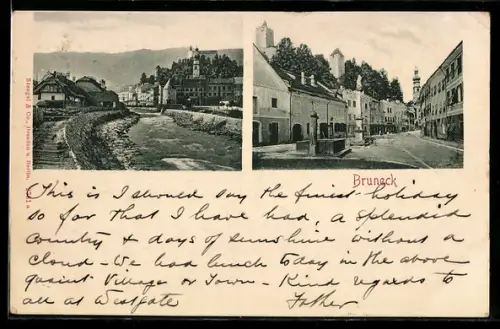 Stengel & Co., Dresden u. Berlin.
Bruneck
This is I should say the finest holiday
so far that I have had, a splendid
Country & days of sunshine without a
cloud - We had lunch today in the above
quaint Village or Town - Kind regards to
all at Westgate Father